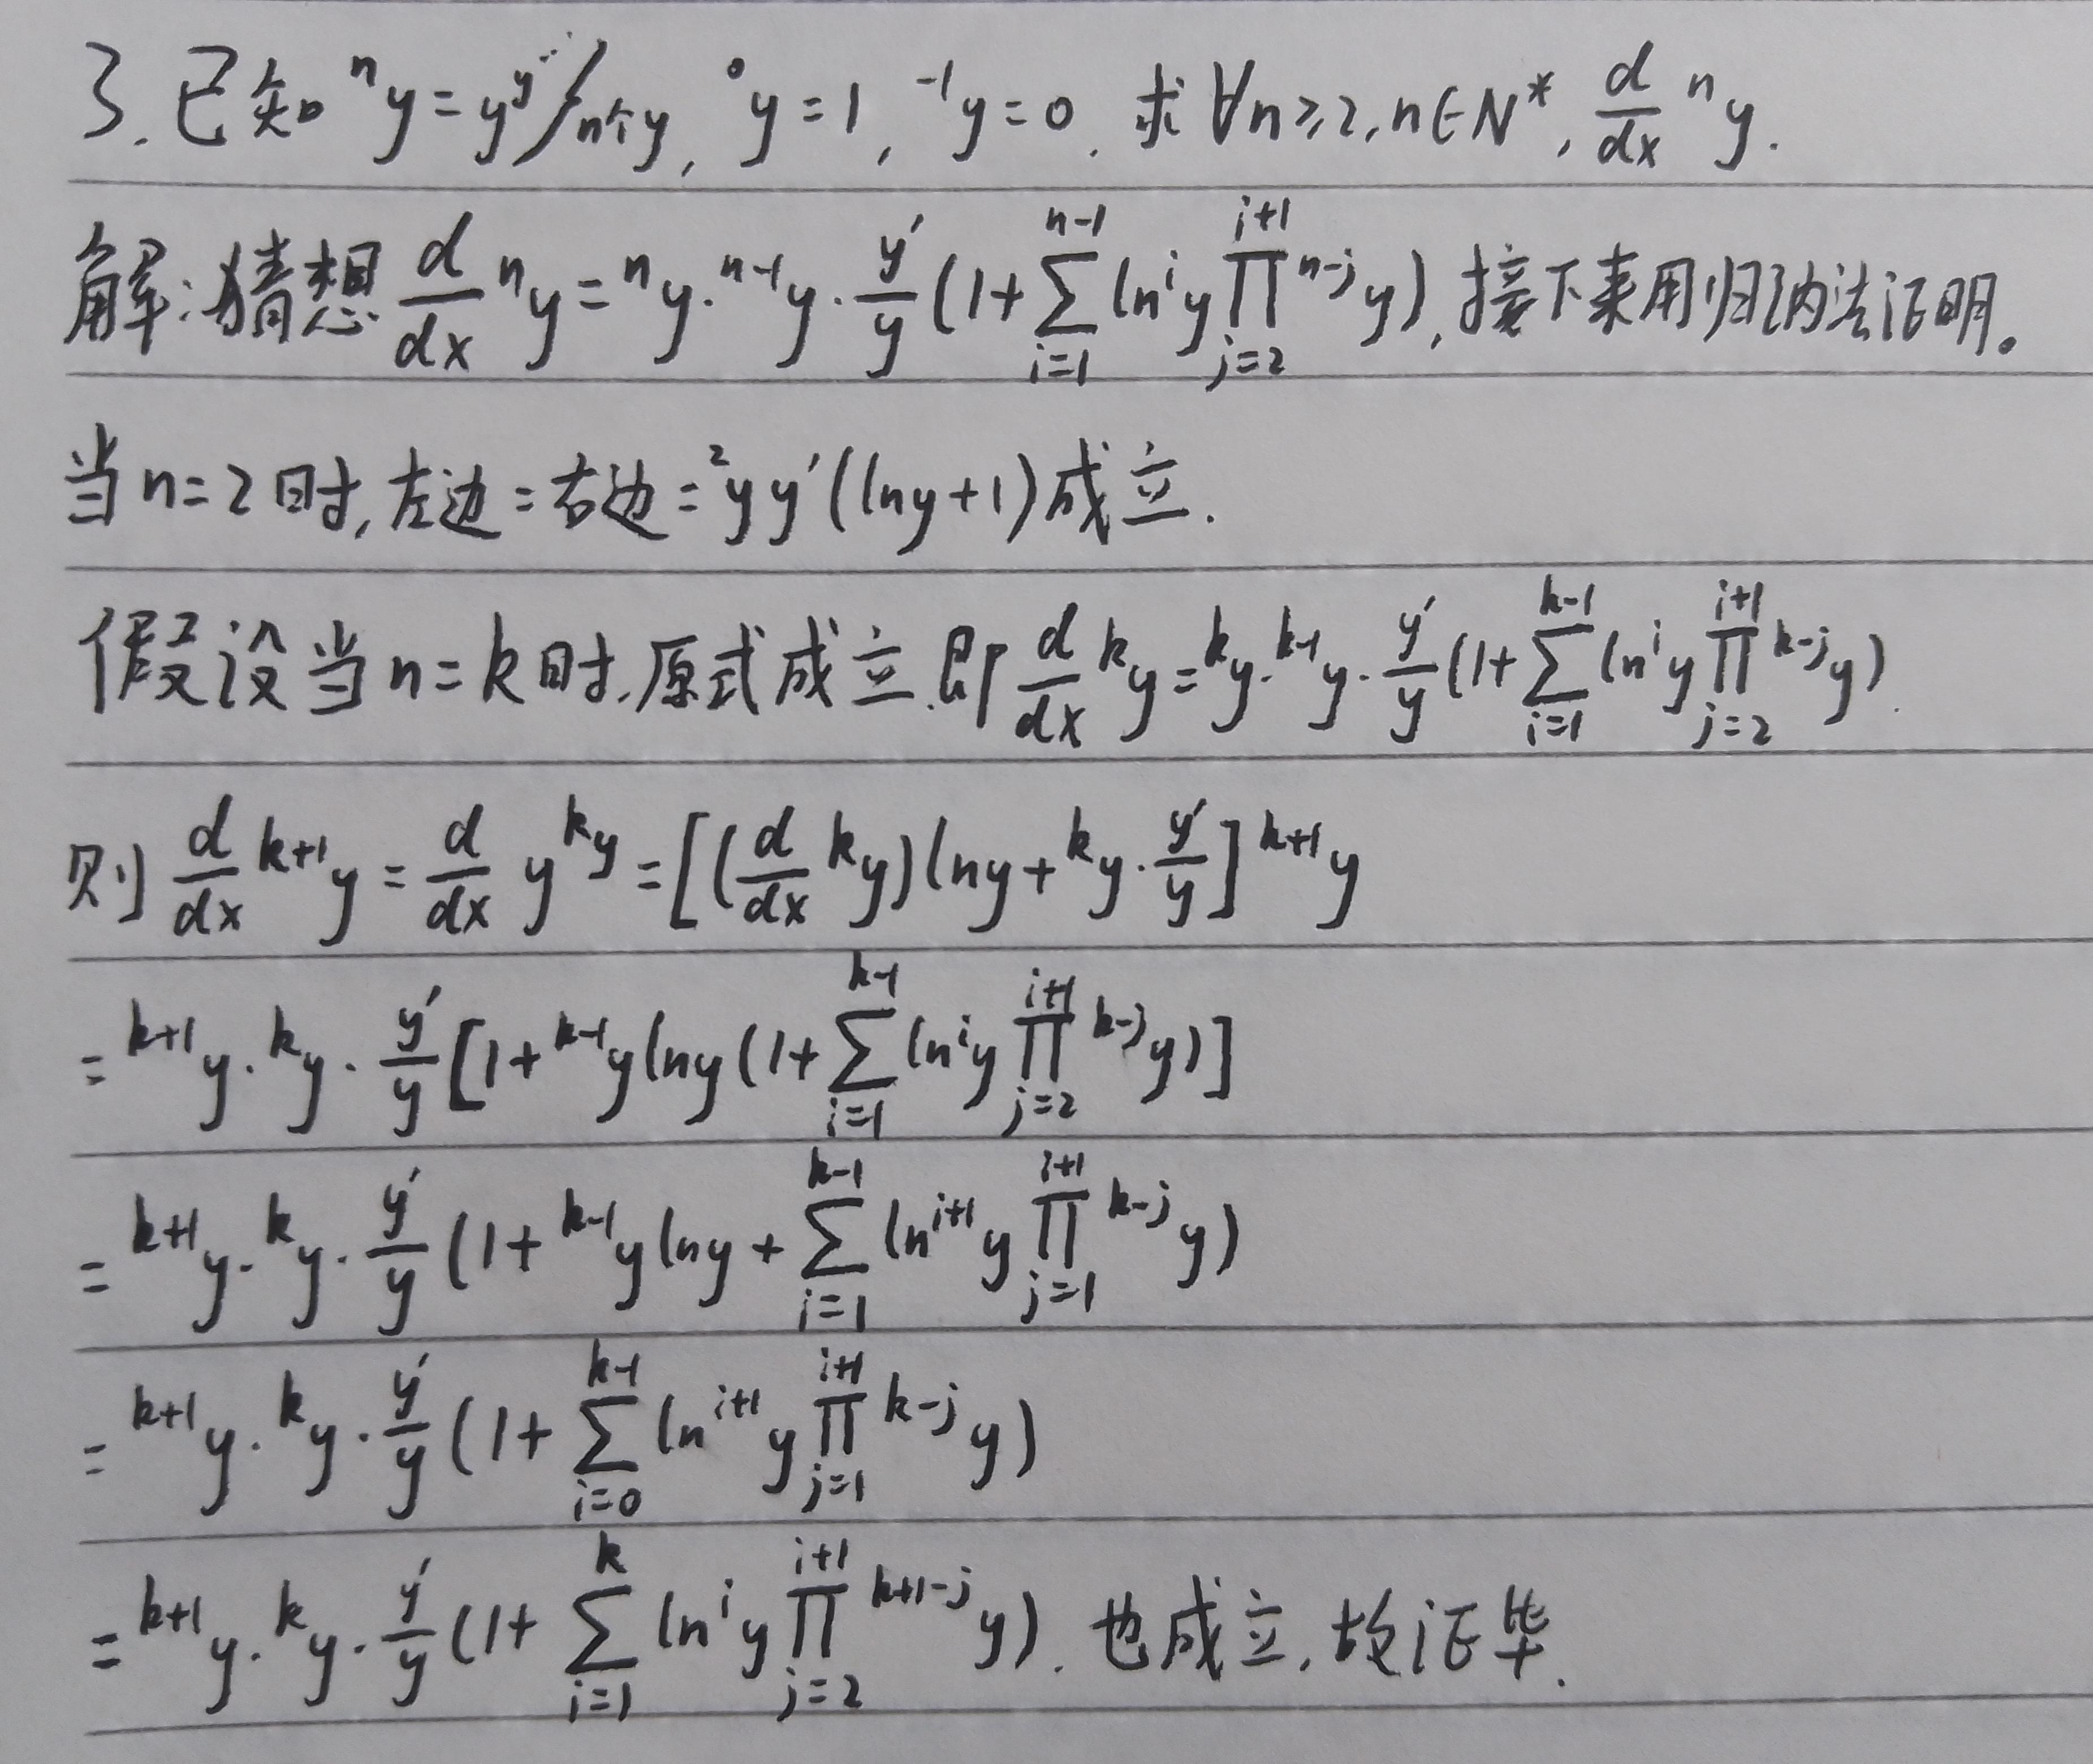 3. 已知 ⁿy = y^{y^{⋰}}/n个y, ⁰y = 1, ⁻¹y = 0. 求 ∀n⩾2, n∈N*, \frac{d}{dx} ⁿy.
解:猜想 \frac{d}{dx} {}^{n}y = {}^{n}y · {}^{n-1}y · \frac{y'}{y} (1 + \sum_{i=1}^{n-1} ln^{i}y \prod_{j=2}^{i+1} {}^{n-j}y), 接下来用归纳法证明。
当 n=2 时, 左边 = 右边 = ²y y'(lny+1) 成立.
假设当 n=k 时, 原式成立. 即 \frac{d}{dx} {}^{k}y = {}^{k}y · {}^{k-1}y · \frac{y'}{y} (1 + \sum_{i=1}^{k-1} ln^{i}y \prod_{j=2}^{i+1} {}^{k-j}y).
则 \frac{d}{dx} {}^{k+1}y = \frac{d}{dx} y^{{}^{k}y} = [(\frac{d}{dx} {}^{k}y) lny + {}^{k}y · \frac{y'}{y}] {}^{k+1}y
= {}^{k+1}y · {}^{k}y · \frac{y'}{y} [1 + {}^{k-1}y lny (1 + \sum_{i=1}^{k-1} ln^{i}y \prod_{j=2}^{i+1} {}^{k-j}y)]
= {}^{k+1}y · {}^{k}y · \frac{y'}{y} (1 + {}^{k-1}y lny + \sum_{i=1}^{k-1} ln^{i+1}y \prod_{j=1}^{i+1} {}^{k-j}y)
= {}^{k+1}y · {}^{k}y · \frac{y'}{y} (1 + \sum_{i=0}^{k-1} ln^{i+1}y \prod_{j=1}^{i+1} {}^{k-j}y)
= {}^{k+1}y · {}^{k}y · \frac{y'}{y} (1 + \sum_{i=1}^{k} ln^{i}y \prod_{j=2}^{i+1} {}^{k+1-j}y). 也成立, 故证毕.